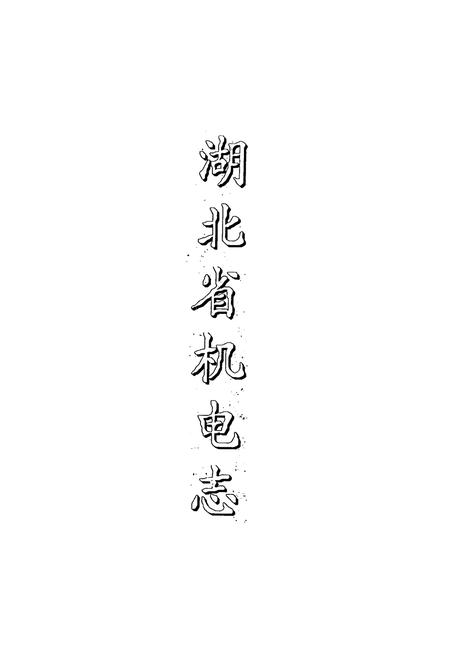 湖北省机电志